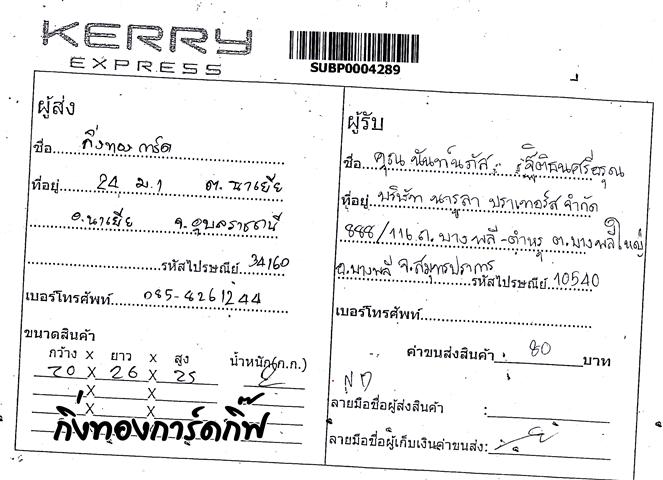 KERRY
EXPRESS
SUBP0004289
ผู้ส่ง
ชื่อ กิ่งทอง การ์ด
ที่อยู่ 24 ม.1 ต.นาเยีย
อ.นาเยีย จ.อุบลราชธานี
รหัสไปรษณีย์ 34160
เบอร์โทรศัพท์ 085-4261244
ขนาดสินค้า
กว้าง X ยาว X สูง น้ำหนัก(ก.ก.)
20 X 26 X 25
X X
X X
กิ่งทองการ์ดกิ๊ฟ
ผู้รับ
ชื่อ คุณ นันท์นภัส
ที่อยู่ บริษัท นารูลา ปราเทอร์ส จำกัด
888/116 ถ.บางพลี-ตำหรุ ต.บางพลีใหญ่
อ.บางพลี จ.สมุทรปราการ รหัสไปรษณีย์ 10540
เบอร์โทรศัพท์
ค่าขนส่งสินค้า 80 บาท
ลายมือชื่อผู้ส่งสินค้า :
ลายมือชื่อผู้เก็บเงินค่าขนส่ง: